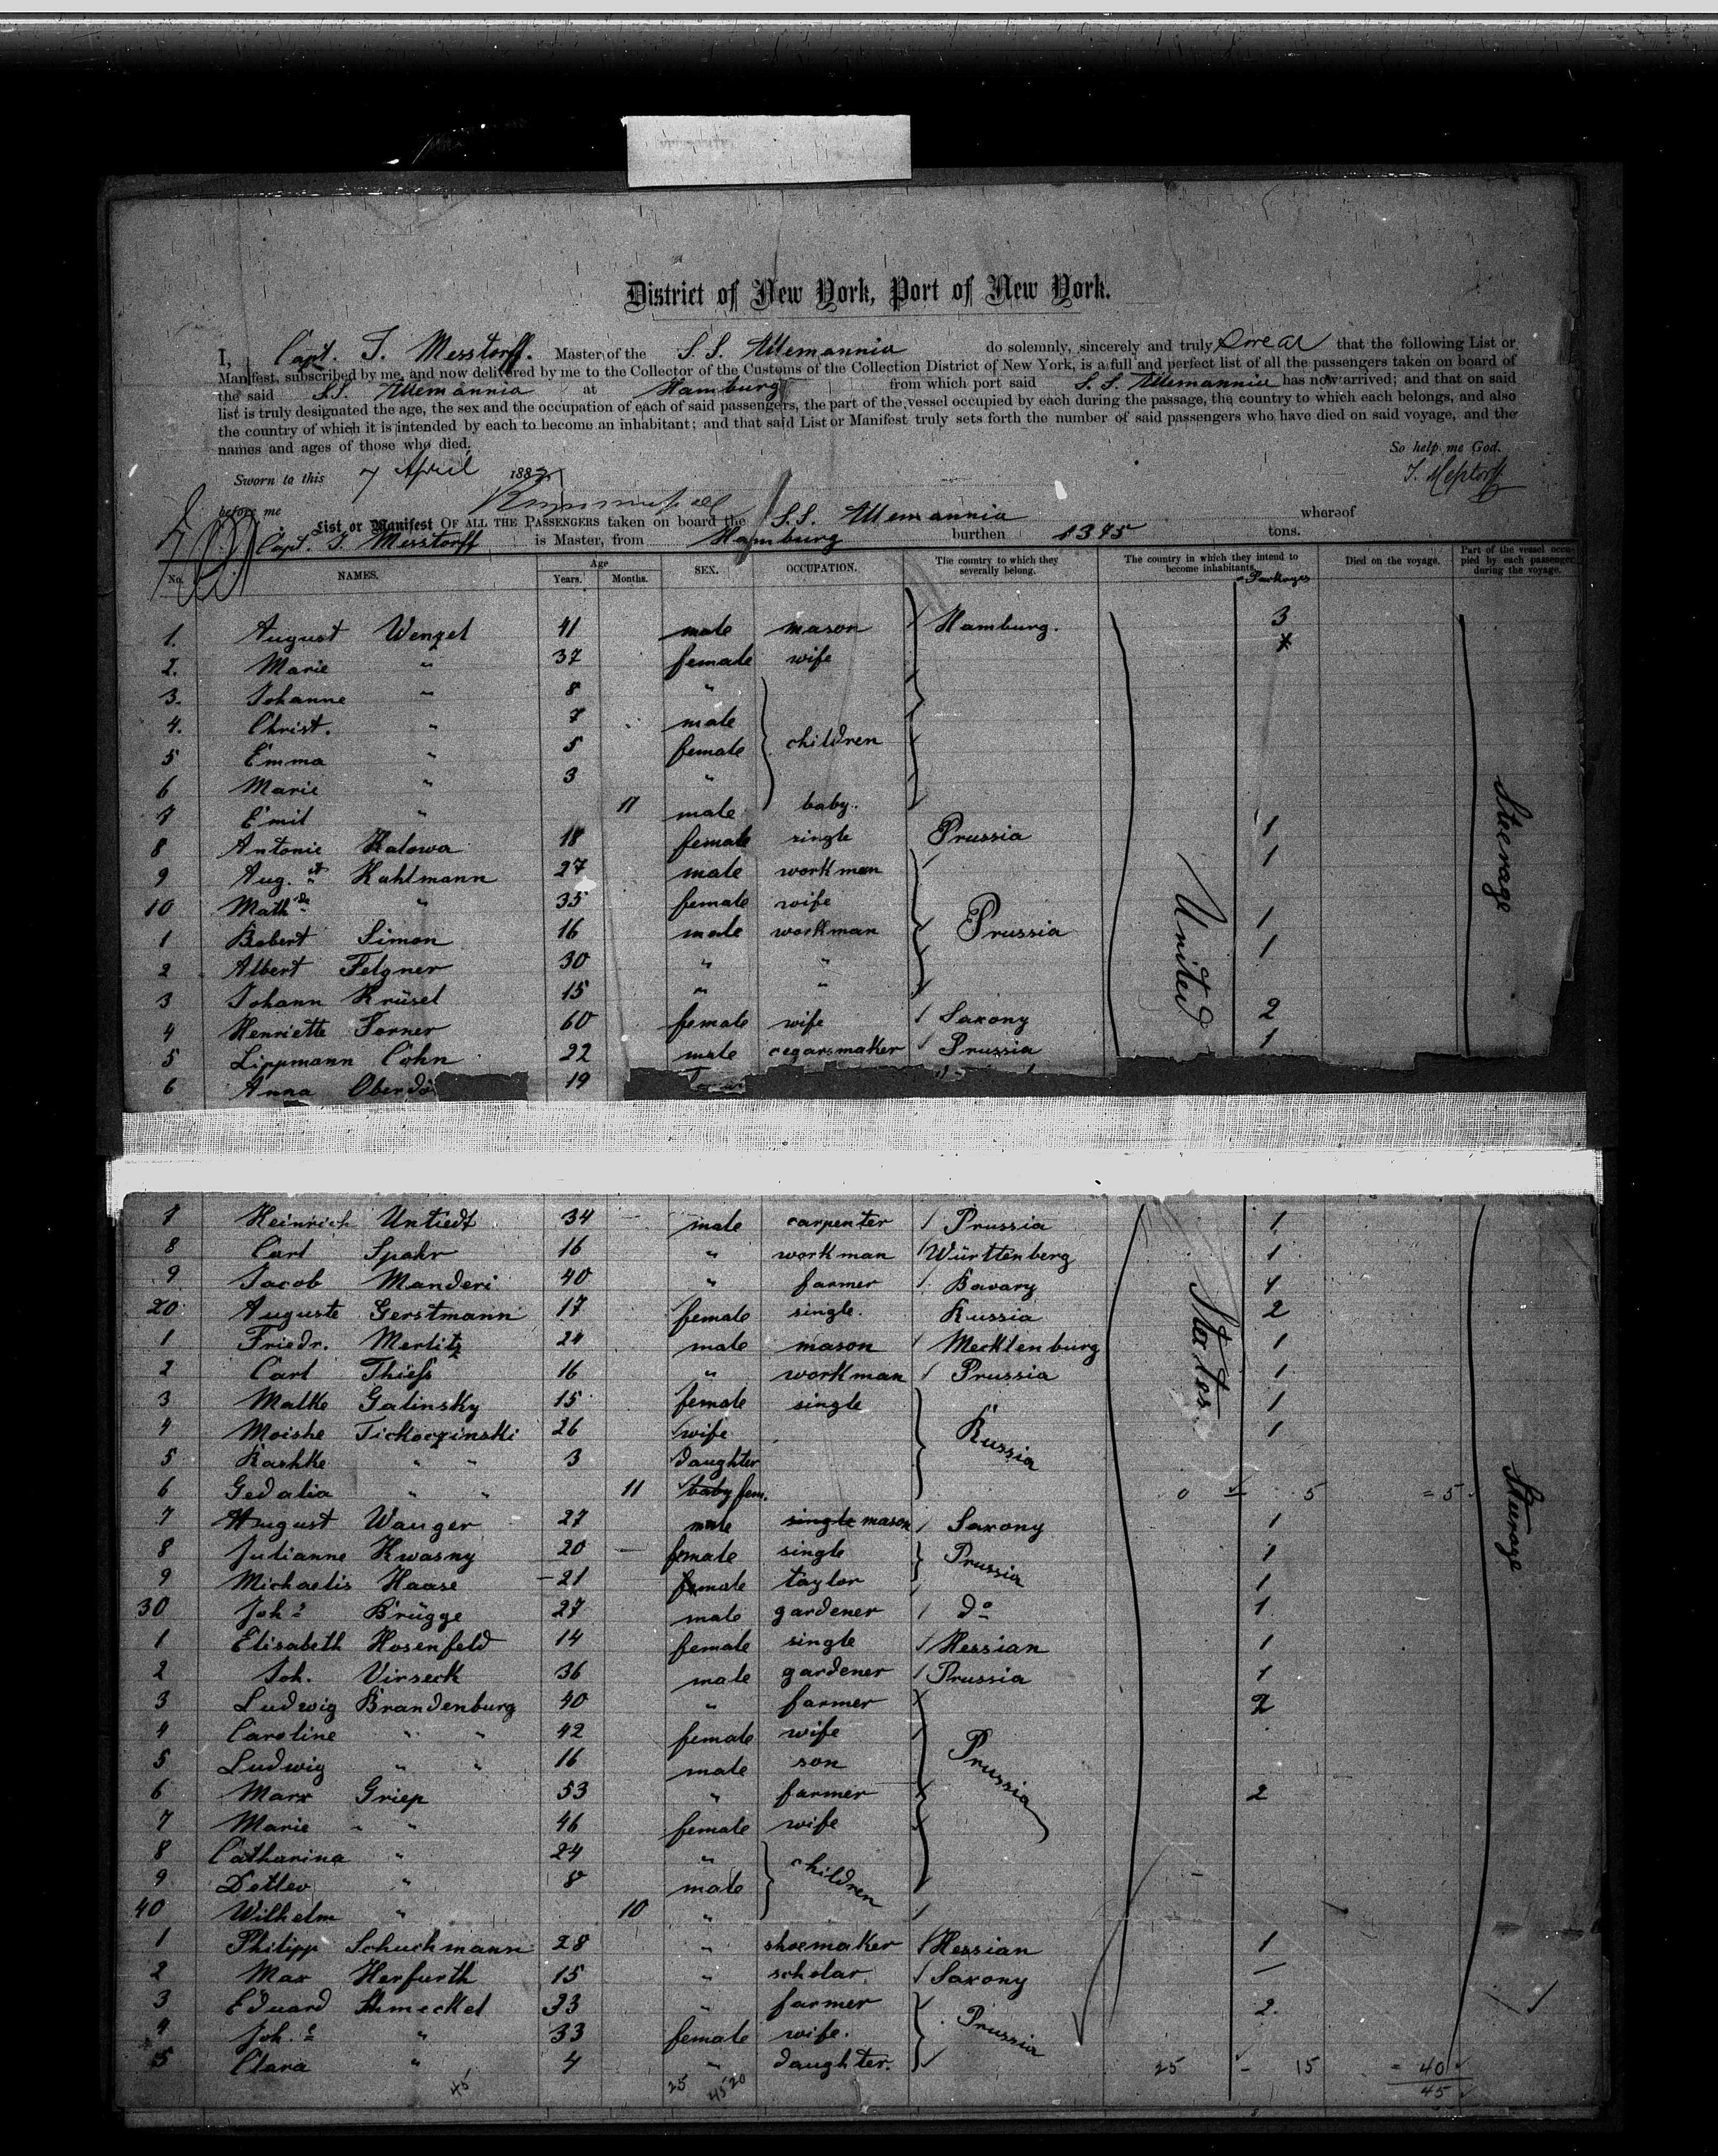 District of New York, Port of New York.
I, Capt. T. Messtorff. Master of the S.S. Allemannia do solemnly, sincerely and truly swear that the following List or
Manifest, subscribed by me, and now delivered by me to the Collector of the Customs of the Collection District of New York, is a full and perfect list of all the passengers taken on board of
the said S.S. Allemannia at Hamburg from which port said S.S. Allemannia has now arrived; and that on said
list is truly designated the age, the sex and the occupation of each of said passengers, the part of the vessel occupied by each during the passage, the country to which each belongs, and also
the country of which it is intended by each to become an inhabitant; and that said List or Manifest truly sets forth the number of said passengers who have died on said voyage, and the
names and ages of those who died.
So help me God.
Sworn to this 7 April 188
T. Meßtorff
before me
List or Manifest OF ALL THE PASSENGERS taken on board the S.S. Allemannia whereof
Capt. T. Messtorff is Master, from Hamburg burthen 1395 tons.
No. NAMES. Age Years. Months. SEX. OCCUPATION. The country to which they severally belong. The country in which they intend to become inhabitants. Packages Died on the voyage. Part of the vessel occupied by each passenger during the voyage.
1. August Wenzel 41 male mason Hamburg. 3
2. Marie " 37 female wife
3. Johanne " 8 "
4. Christ. " 7 male
5 Emma " 5 female children
6 Marie " 3 "
7 Emil " 11 male baby.
8 Antonie Kalowa 18 female single Prussia 1
9 Aug. Kahlmann 27 male workman 1
10 Mathde " 35 female wife
1 Robert Simon 16 male workman Prussia 1
2 Albert Felgner 30 " " 1
3 Johann Krüsel 15 " "
4 Henriette Forner 60 female wife Saxony 2
5 Lippmann Cohn 22 male cegarsmaker Prussia 1
6 Anna Oberdö 19
United
Steerage
7 Heinrich Untiedt 34 male carpenter Prussia 1
8 Carl Spahr 16 " workman Württenberg 1
9 Jacob Manderi 40 " farmer Bavary 1
20 Auguste Gerstmann 17 female single. Russia 2
1 Friedr. Merlitz 24 male mason Mecklenburg 1
2 Carl Thieß 16 " workman Prussia 1
3 Malke Galinsky 15 female single 1
4 Moishe Tickoczinski 26 wife Russia 1
5 Rashke " " 3 daughter
6 Gedalia " " 11 baby fem. 0 - 5 = 5
7 August Wanger 27 male single mason Saxony 1
8 Julianne Kwasny 20 female single Prussia 1
9 Michaelis Haase 21 female taylor 1
30 Joh.s Brügge 27 male gardener do 1
1 Elisabeth Hosenfeld 14 female single Hessian 1
2 Joh. Virseck 36 male gardener Prussia 1
3 Ludwig Brandenburg 40 " farmer 2
4 Caroline " " 42 female wife
5 Ludwig " " 16 male son Prussia
6 Marx Griep 53 " farmer 2
7 Marie " " 46 female wife
8 Catharina " 24 " children
9 Detlev " 8 male
40 Wilhelm " 10 "
1 Philipp Schuchmann 28 " shoemaker Hessian 1
2 Max Herfurth 15 " scholar. Saxony —
3 Eduard Schmeckel 33 " farmer 2.
4 Joh.e " 33 female wife. Prussia
5 Clara " 4 " daughter. 25 - 15 = 40
States.
Steerage
45 25 45 20 45